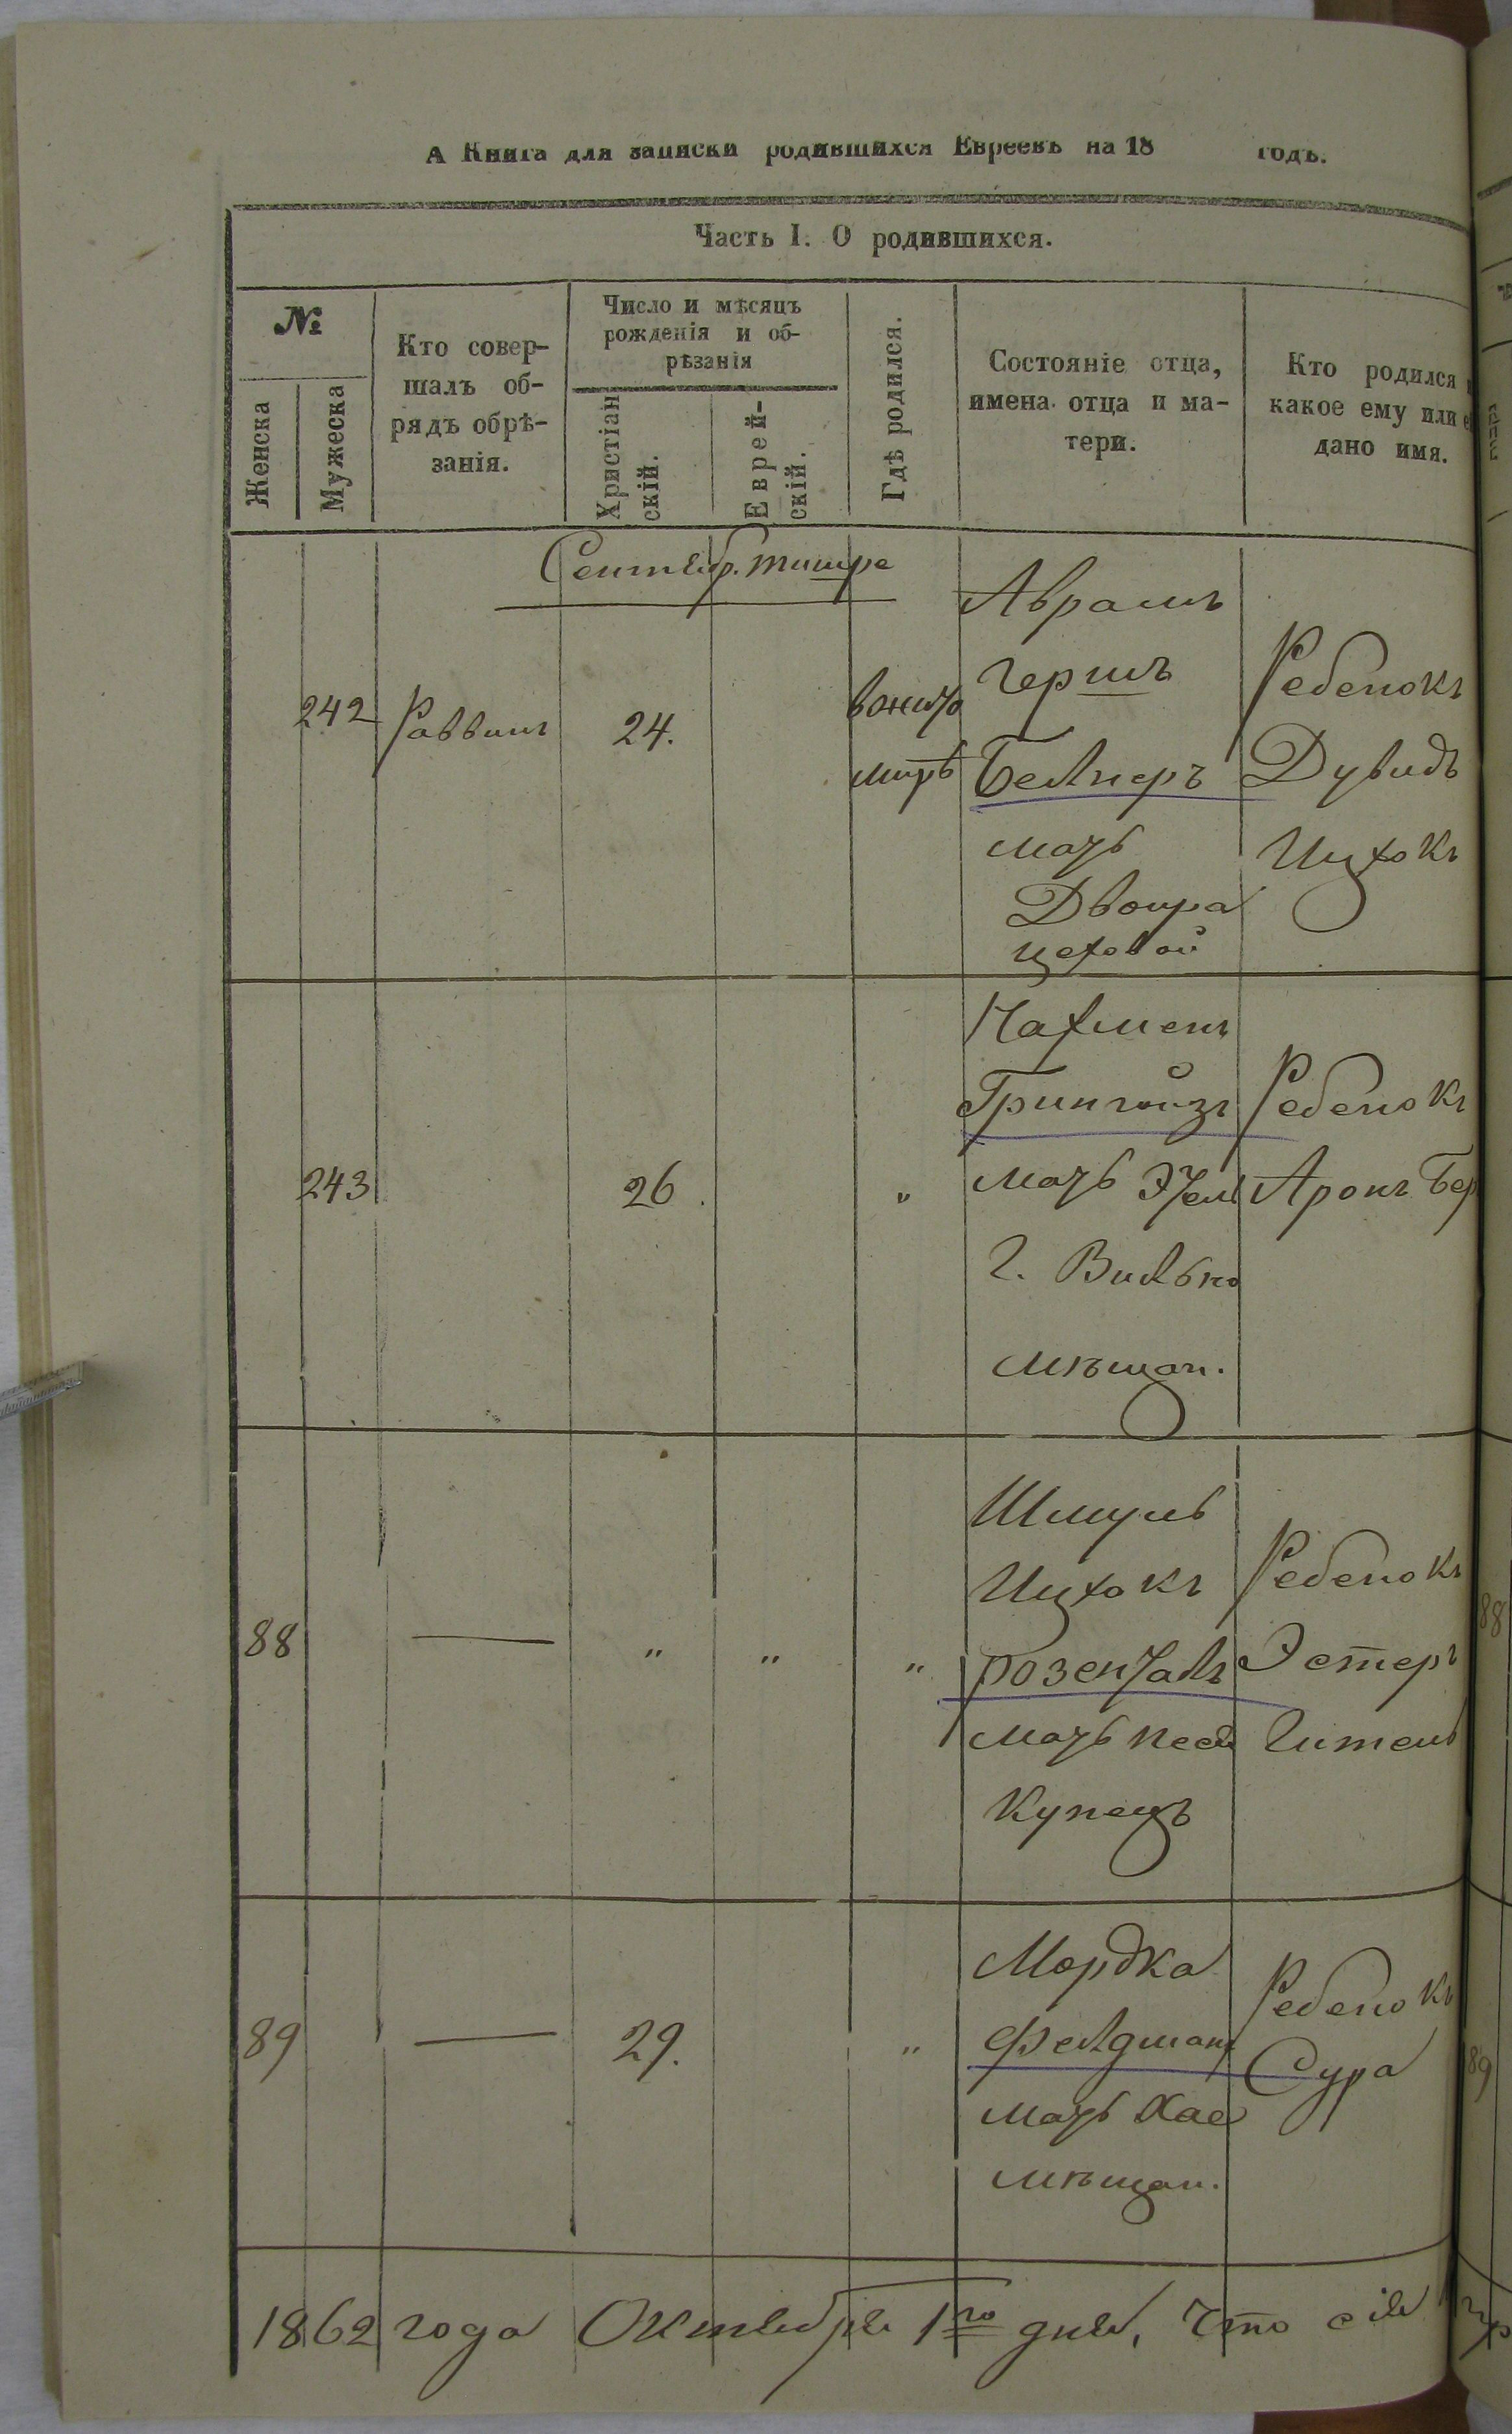 А Книга для записки родившихся Евреевъ на 18 годъ.
Часть I. О родившихся.
№
Женска
Мужеска
Кто совер-
шалъ об-
рядъ обрѣ-
занія.
Число и мѣсяцъ
рожденія и об-
рѣзанія
Христіан
скій.
Еврей-
скій.
Гдѣ родился.
Состояніе отца,
имена отца и ма-
тери.
Кто родился
какое ему или
дано имя.
Сентябр. тишре
242
Раввинъ
24.
вжито
мирѣ
Аврамъ
Гершъ
Белнеръ
мать
Двойра
цеховой
Ребенокъ
Дувидъ
Ицхокъ
243
26.
"
Нахменъ
Грингойзъ
мать
г. Вильно
мѣщан.
Ребенокъ
Аронъ Бер
88
—
"
"
"
Шмуль
Ицхокъ
Розенталъ
мать Песя
Купецъ
Ребенокъ
Эстеръ
Гитель
88
89
—
29.
"
Мордка
Фелдманъ
мать Хая
мѣщан.
Ребенокъ
Сура
89
1862 года Октября 1го дня, Что сія